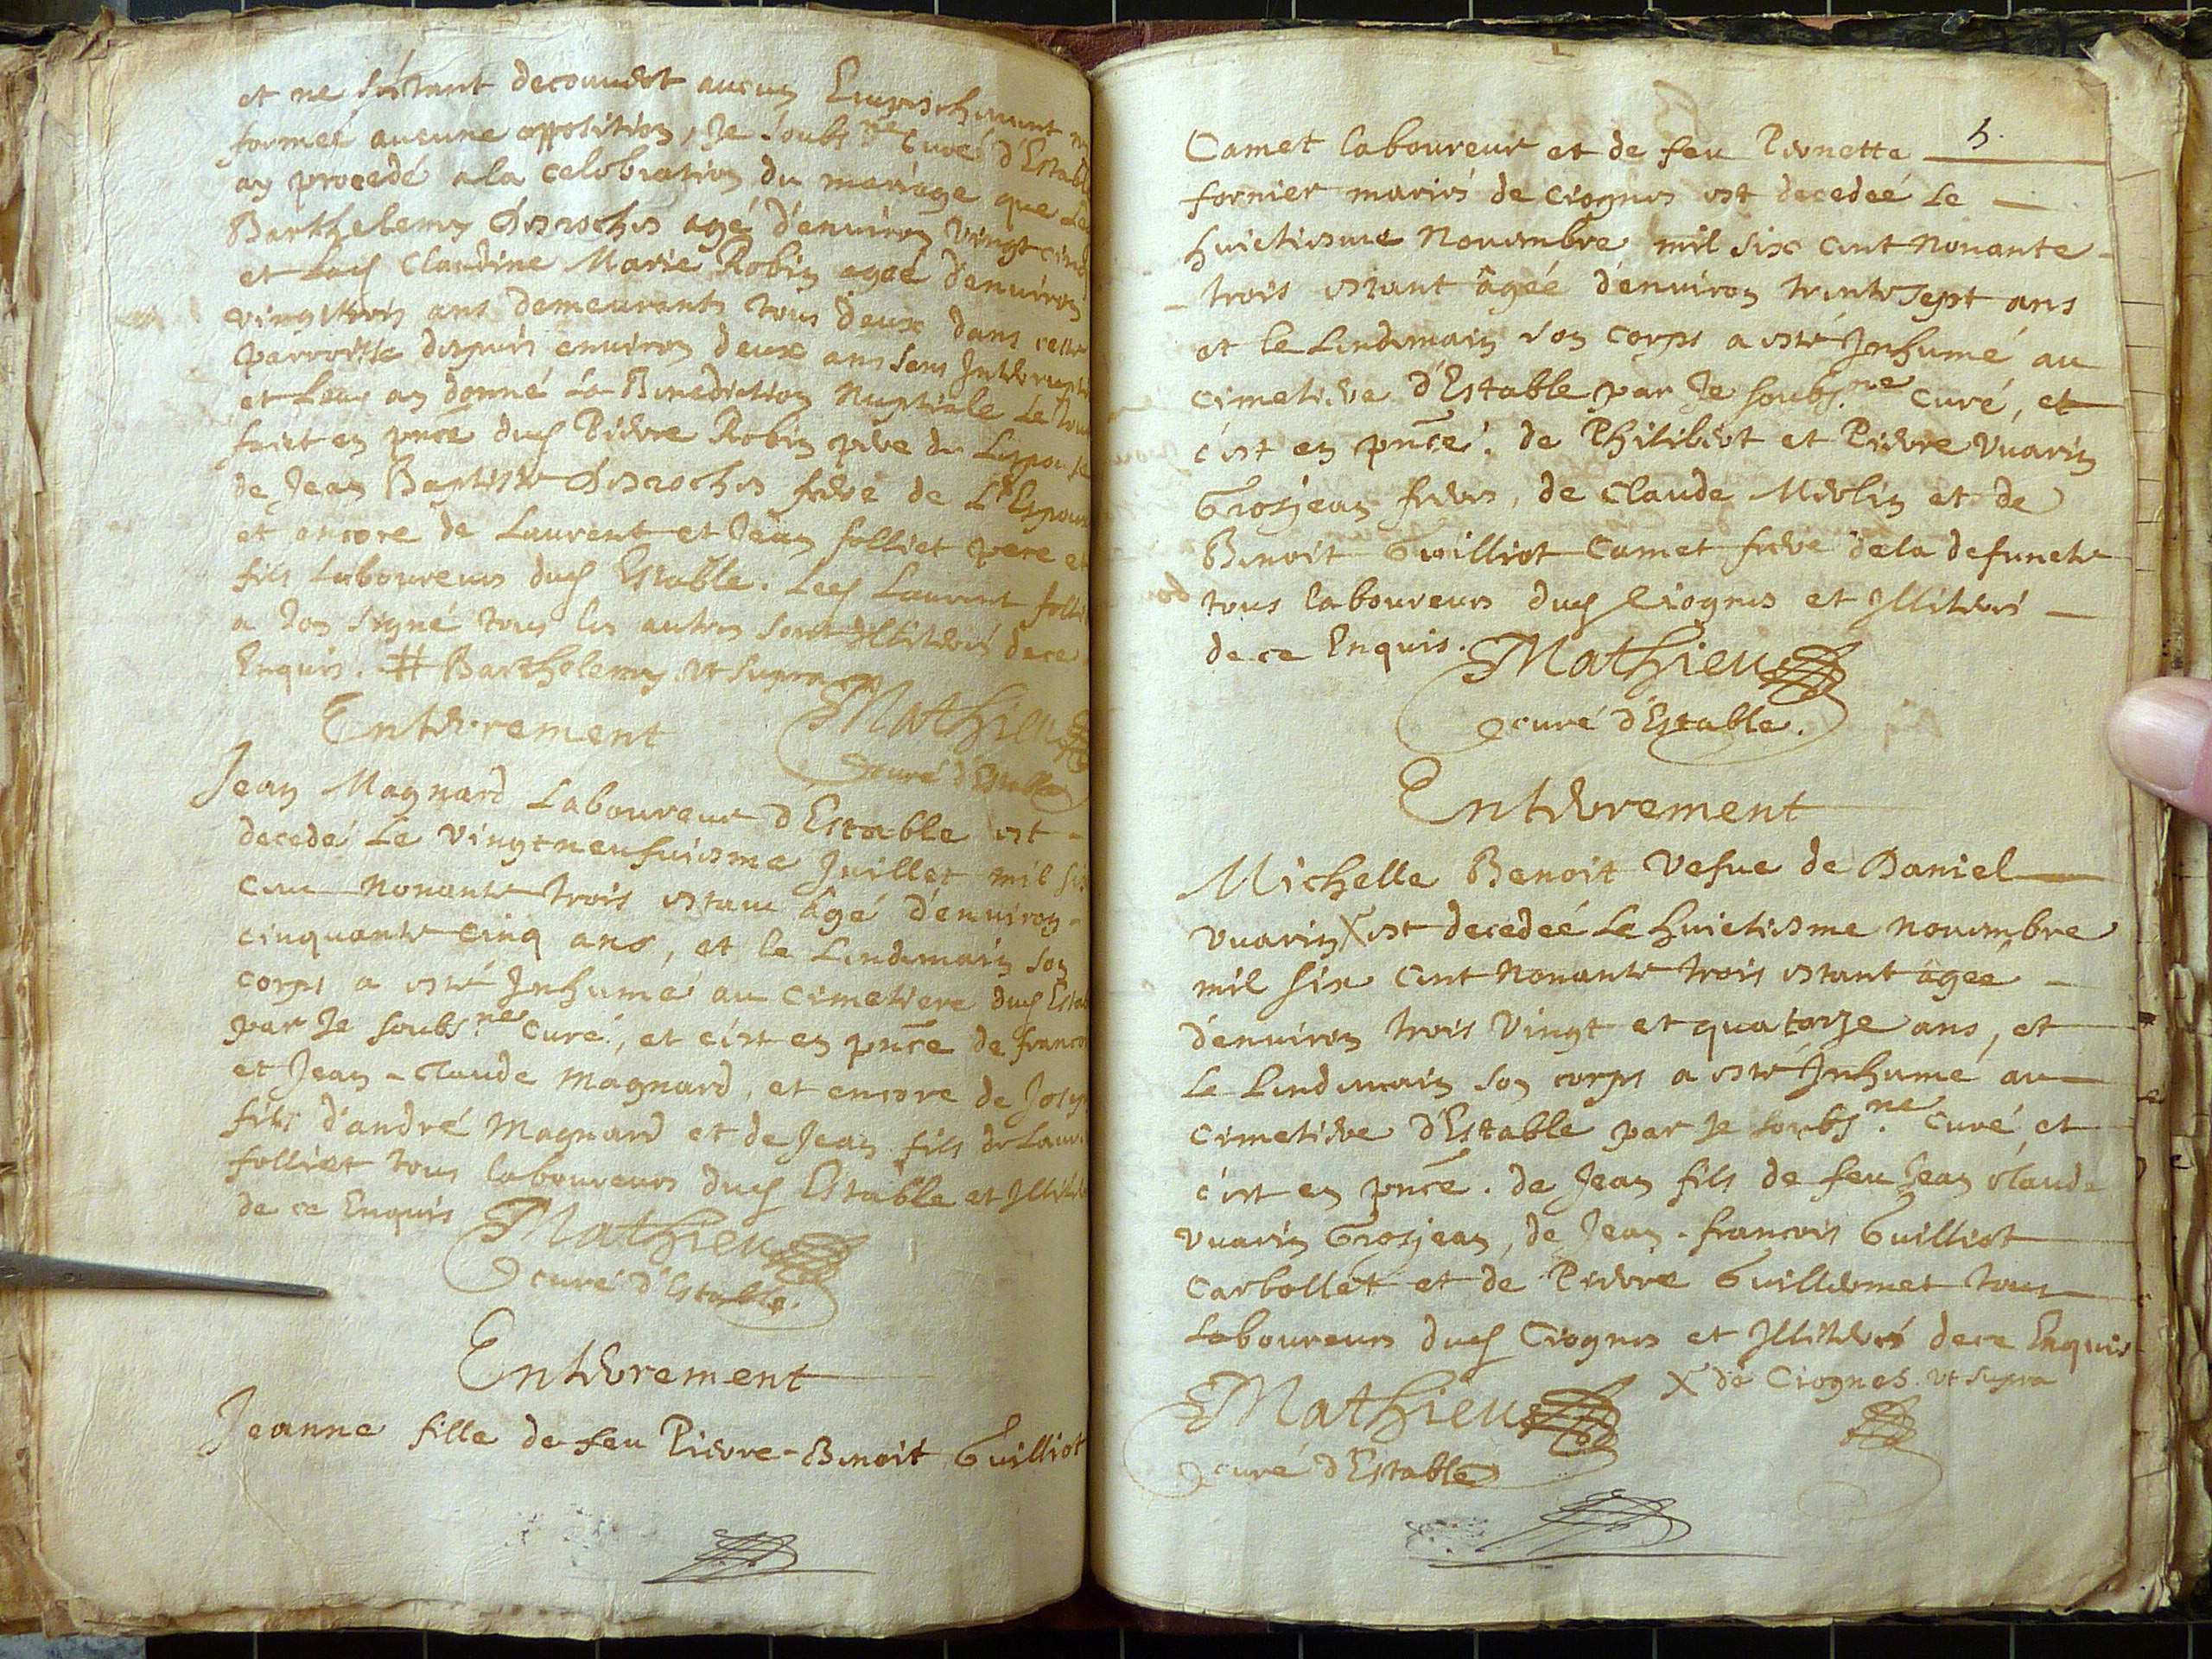 et ne s'étant decouvert aucun Empeschement
formé aucune opposition, Je soubs.né Curé d'Estable
ay procedé a la celebration du mariage que
Barthelemy Desroches agé d'environ vingt cinq
et Lad Claudine Marie Robin agée d'environ
vingt trois ans demeurants tous deux dans cette
parroisse depuis environ deux ans sans Interruption
et Leur ay donné La Benediction Nuptiale Le tout
faict en pnce dud Pierre Robin pere de Lepouse
de Jean Baptiste Desroches frere de L'Espoux
et encore de Laurent et Jean folliet pere et
fils Laboureurs dud Estable. Led Laurent folliet
a Icy signé tous les autres sont Illiterés de ce
Enquis. # Barthelemy ut supra
Mathieu
Enterrement
curé d'Estable
Jean Magnard Laboureur d'Estable est -
decedé Le vingtneufuiesme Juillet mil six
cent Nonante trois estant âgé d'environ -
cinquante cinq ans, et le Lendemain son
corps a esté Inhumé au cimetiere dud Estable
par Je soubs.né Curé, et c'est en pnce de francois
et Jean-Claude Magnard, et encore de Joseph
fils d'andré Magnard et de Jean fils de Laurent
folliet tous laboureurs dud Estable et Illiterés
de ce Enquis
Mathieu
curé d'Estable.
Enterrement
Jeanne fille de feu Pierre-Benoit Guilliot
5.
Camet laboureur et de feu Pernette
fornier mariés de Ciognes est decedeé Le -
huictiesme Novembre mil six cent Nonante -
- trois estant âgeé d'environ trente sept ans
et le Lendemain son corps a esté Inhumé au
cimetiere d'Estable par Je soubs.né Curé, et
c'est en pnce. de Philibert et Pierre Vuarin
Grosjean freres, de Claude Merlin et de
Benoit Guilliot Camet frere de la defuncte
tous laboureurs dud Ciognes et Illiterés -
de ce Enquis.
Mathieu
curé d'Estable.
Enterrement
Michelle Benoit Vefue de Daniel
Vuarin X est decedeé Le huictiesme novembre
mil six cent Nonante trois estant âgeé -
d'environ trois Vingt et quatorze ans, et
Le Lendemain son corps a esté Inhumé au
cimetiere d'Estable par Je soubs.né Curé et
c'est en pnce. de Jean fils de feu Jean Claude
Vuarin Grosjean, de Jean-francois Guilliot
Carbollet et de Pierre Guillermet tous
Laboureurs dud Ciognes et Illiterés de ce Enquis
X de Ciognes. ut supra
Mathieu
curé d'Estable